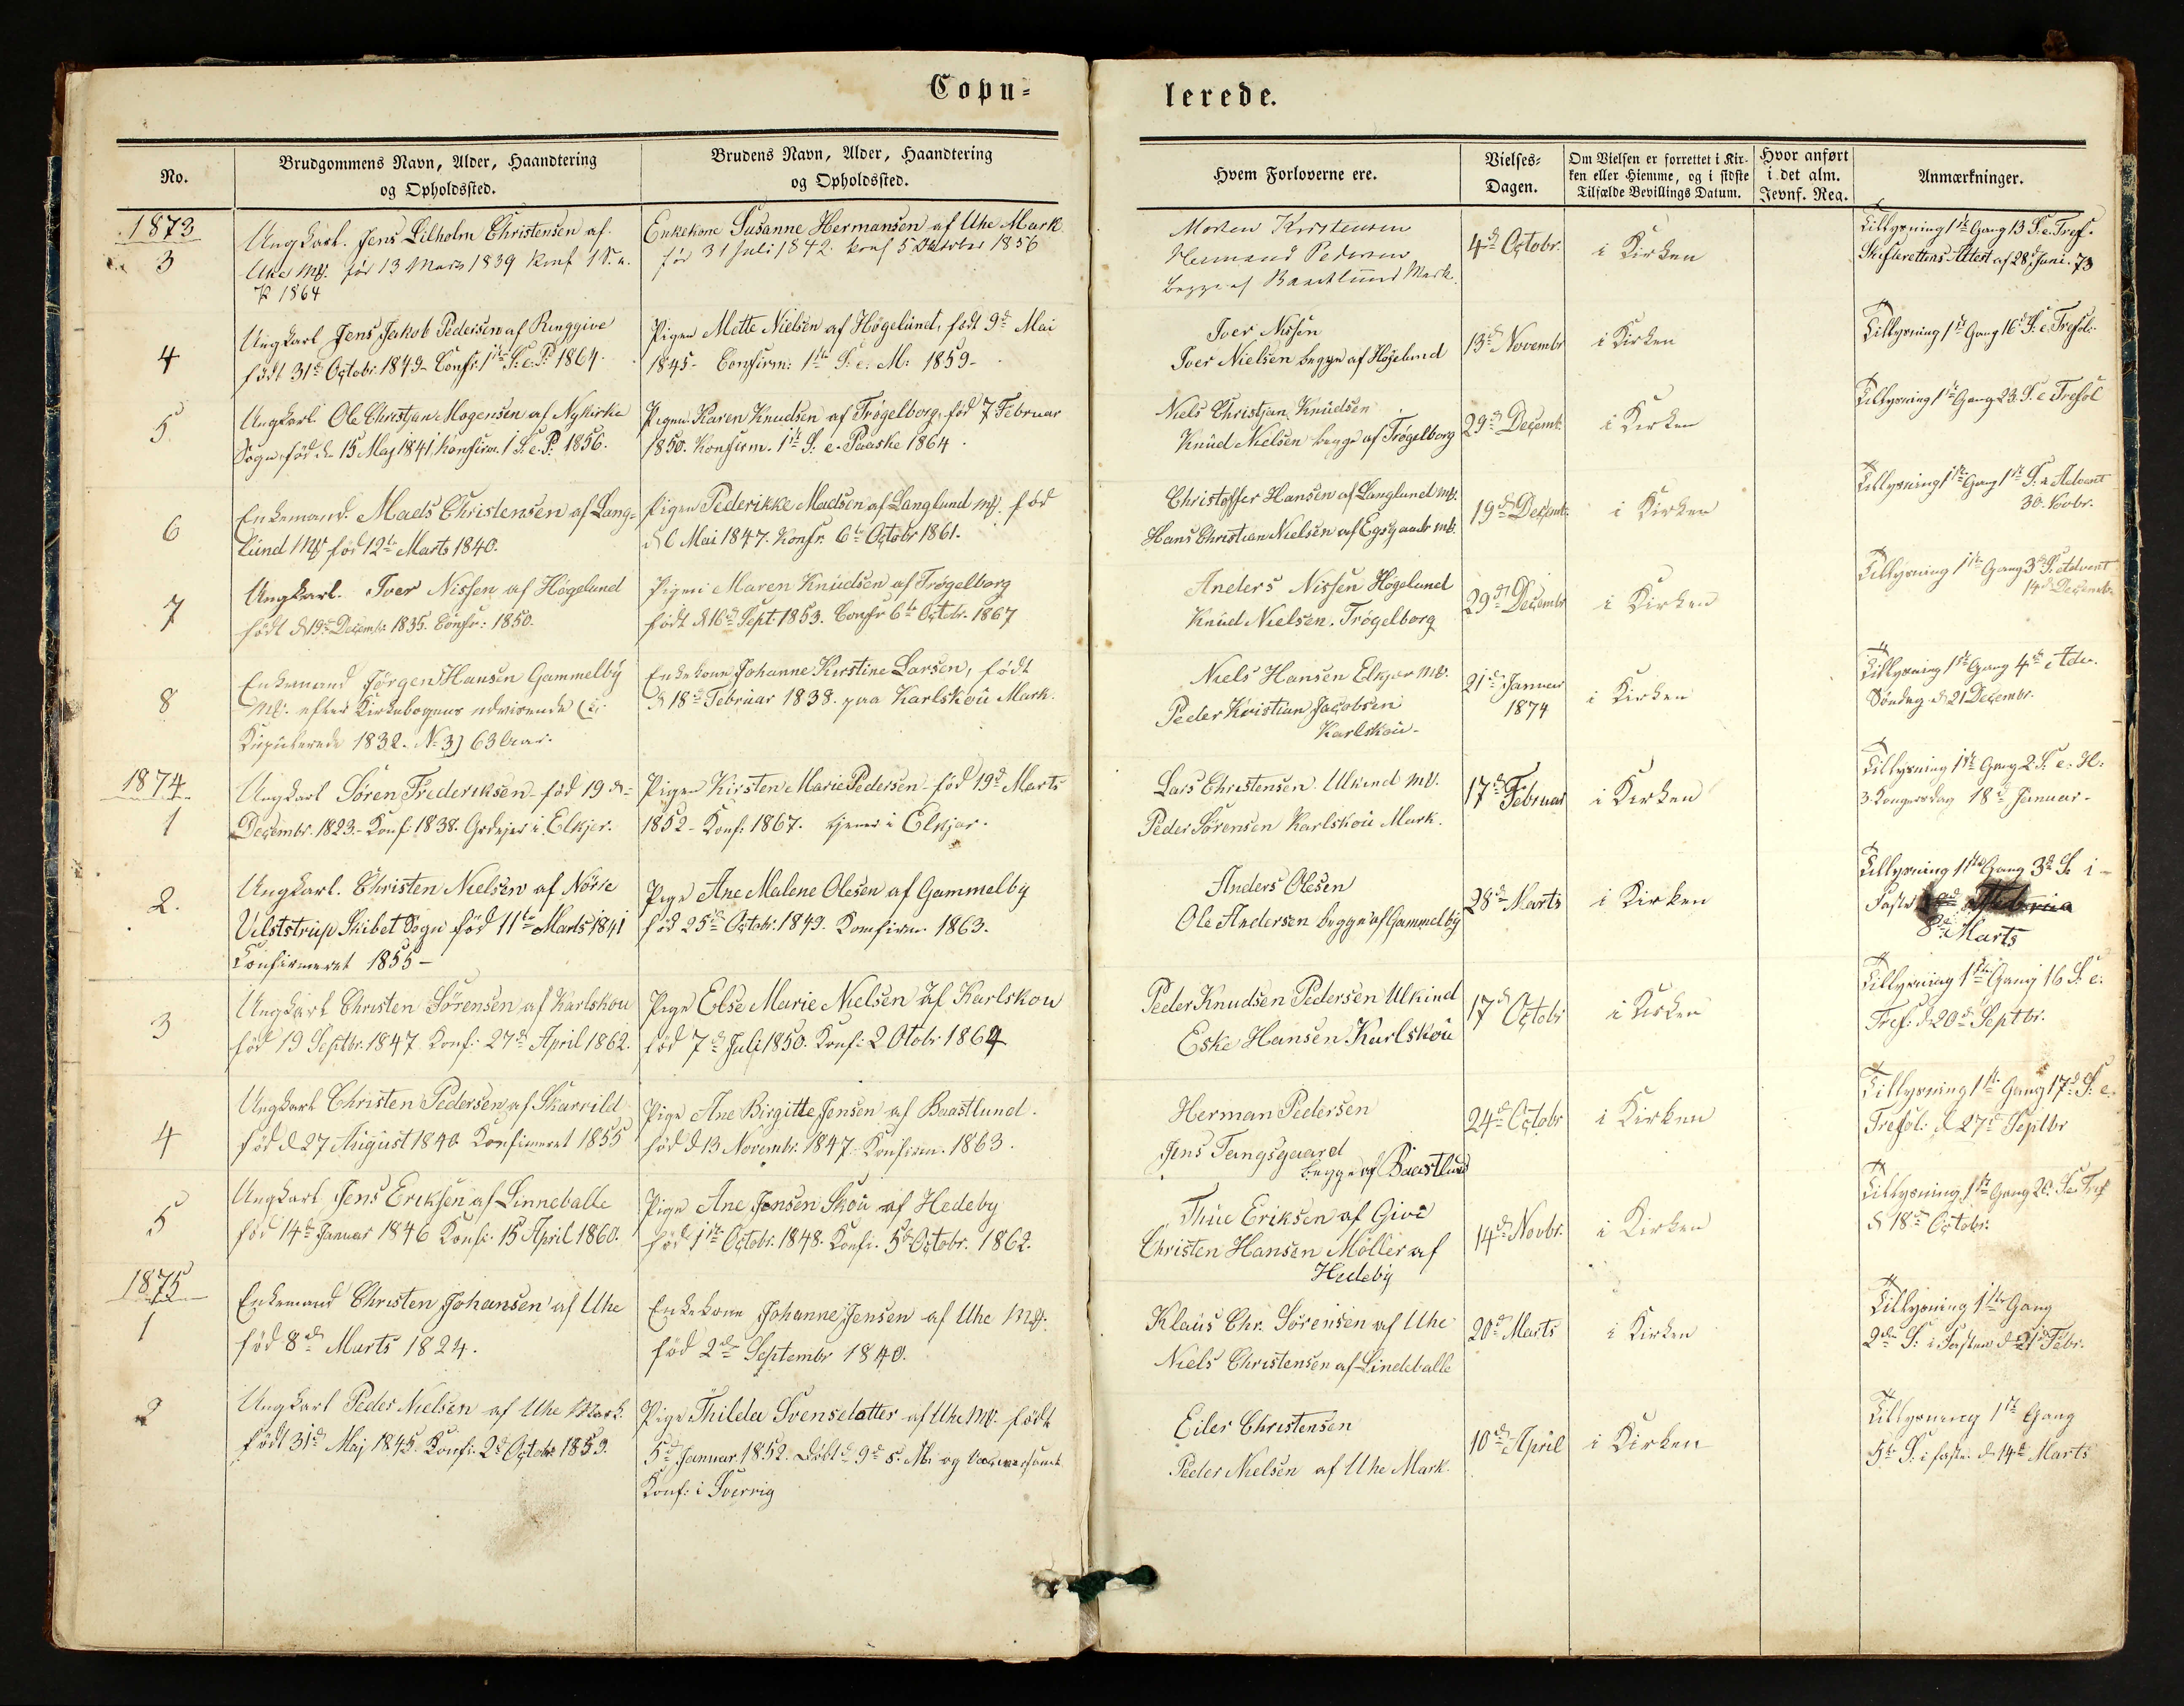 Copu-
lerede.
No.
Brudgommens Navn, Alder, Haandtering
og Opholdssted.
Brudens Navn, Alder, Haandtering
og Opholdssted.
Hvem Forloverne ere.
Vielses-
Dagen.
Om Vielsen er forrettet i Kir-
ken eller Hiemme, og i sidste
Tilfælde Bevillings Datum.
Hvor anført
i det alm.
Jevnf. Reg.
Anmærkninger.
1873
3
Ungkarl. Jens Lilholm Christensen af
Uhe Mk. før 13 Mars 1839 konf 1 S. e.
P 1864
Enkekone Susanne Hermansen af Uhe Mark
før 31 Juli 1842. konf 5 Oktober 1856
Morten Kirstensen
Hermand Pedersen
begge af Baastlund Mark.
4de Octobr.
i Kirken
Tillysning 1ste Gang 13 S. e. Tref.
Skifterettens Attest af 28 Juni. 73
4
Ungkarl Jens Jakob Pedersen af Ringgive
født 31te Octobr. 1849 - Confir: 1ste S: e: P: 1864.
Pigen Mette Nielsen af Høgelund, født 9de Mai
1845 - Confirm: 1ste S: e: M: 1859 -
Iver Nissen
Iver Nielsen begge af Høgelund
13de Novembr
i Kirken
Tillysning 1ste Gang 16de S: e. Trefol:
5
Ungkarl Ole Christjan Mogensen af Nykirke
Sogn, fød d. 15 Maj 1841, konfirm. 1 S. e. P. 1856.
Pigen Karen Knudsen af Trøgelborg, fød 7 Februar
1850. Konfirm. 1ste S: e. Paaske 1864.
Niels Christjan Knudsen
Knud Nielsen begge af Trøgelborg
29de Decemb:
i Kirken
Tillysning 1ste Gang 23. S. e Trefol
6
Enkemand. Mads Christensen af Lang-
lund Mk fød 12te Marts 1840.
Pigen Pederikke Madsen af Langlund Mk. fød
d. 6 Mai 1847. Konfr. 6te Octobr 1861.
Christoffer Hansen af Langlund Mk.
Hans Christian Nielsen af Egsgaard Mk.
19de Decemb:
i Kirken
Tillysning 1ste Gang 1ste S: i Advent
30. Novbr.
7
Ungkarl. Iver Nissen af Høgelund
født d 19de Decembr 1835. Confir: 1850.
Pigen Maren Knudsen af Trøgelborg
født d 16de Sept. 1853. Confr 6te Octobr. 1867
Anders Nissen Høgelund
Knud Nielsen. Trøgelborg
29de Decembr
i Kirken
Tillysning 1ste Gang 3de S. i Advent
14de Decembr
8
Enkemand Jørgen Hansen Gammelby
Mk. efter Kirkebogens udvisende (i
Kopulerede 1832. No 3) 63 Aar.
Enkekone Johanne Kirstine Larsen, født
d 18de Februar 1838. paa Karlskou Mark.
Niels Hansen Elkjær Mk.
Peder Kristian Jacobsen
Karlskou -
21de Januar
1874
i Kirken
Tillysning 1ste Gang 4de i Adv.
Søndag d. 21 Decembr.
1874
1
Ungkarl Søren Frederiksen fød 19 de
Decembr. 1823 - Konf: 1838. Grdejer i Elkjer.
Pigen Kirsten Marie Pedersen fød 19de Marts
1852 - Konf: 1867. tjener i Elkjær.
Lars Christensen Ulkind Mk.
Peder Sørensen Karlskou Mark.
17de Februar
i Kirken
Tillysning 1ste Gang 2 S. e. H.
3 Kongersdag 18de Januar.
2.
Ungkarl. Christen Nielsen af Nørre
Vilststrup Skibet Sogn fød 11te Marts 1841
Konfirmeret 1855 -
Pige Ane Malene Olesen af Gammelby
fød 25de Octobr. 1849. Konfirm. 1863.
Anders Olesen
Ole Andersen begge af Gammelby
28de Marts
i Kirken
Tillysning 1ste Gang 3de S. i
Faste
8de Marts
3
Ungkarl Christen Sørensen af Karlskou
fød 19 Septbr. 1847 Konf: 27de April 1862.
Pige Else Marie Nielsen af Karlskou
fød 7de Juli 1850. Konf: 2 Otobr. 1864
Peder Knudsen Pedersen Ulkind
Eske Hansen Karlskou
17de Octobr
i Kirken
Tillysning 1ste Gang 16 S. e.
Tref: d. 20de Septbr.
4
Ungkarl Christen Pedersen af Skarrild
fød d 27 August 1840 Konfirmeret 1855
Pige Ane Birgitte Jensen af Baastlund.
fød d 13 Novembr. 1847. Konfirm. 1863.
Herman Pedersen
Jens Tangsgaard
begge af Baastlund
24de Octobr
i Kirken
Tillysning 1ste Gang 17de S. e.
Trefol: d 27de Septbr
5
Ungkarl Jens Eriksen af Linneballe
fød 14de Januar 1846 Konfi: 15 April 1860.
Pige Ane Jensen Skou af Hedeby
fød 1ste Octobr. 1848. Konfi. 5te Octobr. 1862.
Thue Eriksen af Give
Christen Hansen Møller af
Hedeby
14de Novbr.
i Kirken
Tillysning 1ste Gang 20. S. e. Tref
d 18de Octobr.
1875
1
Enkemand Christen Johansen af Uhe
fød 8de Marts 1824.
Enkekone Johanne Jensen af Uhe Mk.
fød 2de Septembr 1840.
Klaus Chr. Sørensen af Uhe
Niels Christensen af Lindeballe
20de Marts
i Kirken
Tillysning 1ste Gang
2den S: i Fasten d 21de Febr.
2
Ungkarl Peder Nielsen af Uhe Mark.
født 31de Maj 1845. Konfi: 2de Octobr 1859.
Pige Thilda Svensdatter af Uhe Mk. født
5te Januar 1852. Døbt d 9de s. M. og
Konf: i Sverrig
Eiler Christensen
Peder Nielsen af Uhe Mark.
10de April
i Kirken
Tillysning 1ste Gang
5te S: i faste. d. 14de Marts